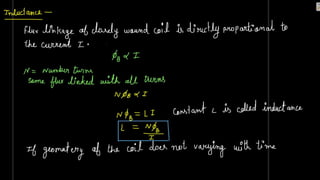 Inductance —
Flux linkage of closely wound coil is directly proportional to
the current I.
ϕB ∝ I
N = Number turns
Same flux linked with all turns
NϕB ∝ I
NϕB = L I    Constant L is called inductance
L = NϕB / I
If geomatery of the coil does not varying with time